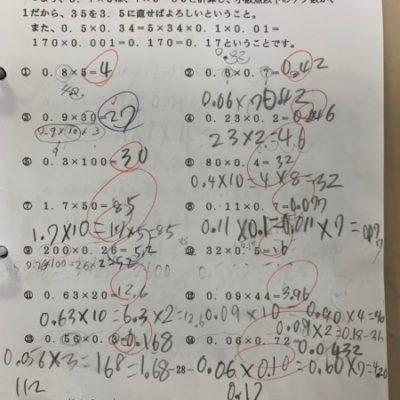 1だから、35を3.5に直せばよろしいということ。
また、0.5×0.34=5×34×0.1×0.01=
170×0.001=0.170=0.17ということです。
0.32
① 0.8×5=4
② 0.6×0.7=0.42
③ 0.9×30=27
0.9×10×3
④ 0.23×0.2=0.046
23×2=46
⑤ 0.3×100=30
⑥ 80×0.4=32
0.4×10=4×8=32
⑦ 1.7×50=85
1.7×10=17×5=85
⑧ 0.11×0.7=0.077
0.11×0.1=0.011×7=0.077
⑨ 200×0.26=52
⑩ 32×0.5=16
⑪ 0.63×20=12.6
0.63×10=6.3×2=12.6
⑫ 0.09×44=3.96
0.09×10=
⑬ 0.56×0.3=0.168
0.056×3=168=1.68
112
-28-
⑭ 0.06×0.72=0.0432
0.06×0.10=0.60×7=420
0.12